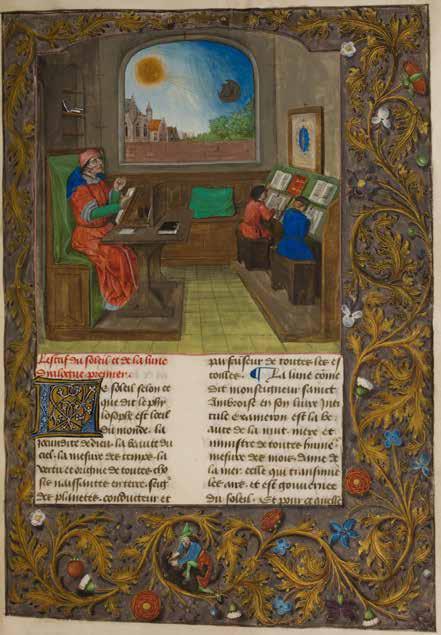 Lestrif du soleil et de la lune
Dialogue premier.
Le soleil selon ce
que dit le phy
losophe est loeil
du monde. la
jocundite de dieu. la beaute du
ciel. la mesure des temps. la
vertu et origine de toutes cho
ses naissantes en terre. seigr
des planettes. conducteur et
parfaiseur de toutes les es
toilles. ¶ La lune come
dit monseigneur sainct
Ambroise en son livre inti
tule Exameron est la be
aute de la nuit. mere et
ministre de toutes humeurs
mesure des mois. dame de
la mer. celle qui transmue
les airs. et est gouvernee
du soleil. Et pour ce quelle